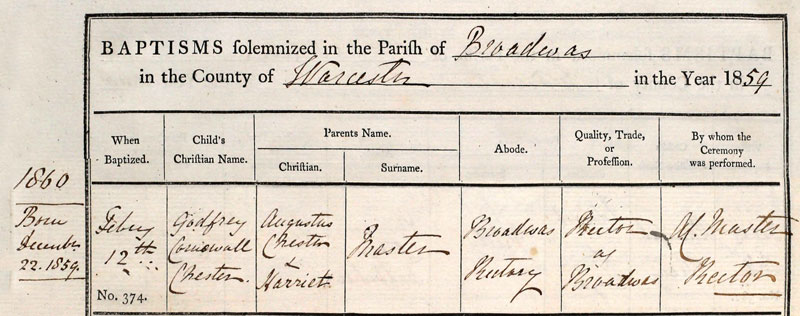 BAPTISMS solemnized in the Parish of Broadwas
in the County of Worcester in the Year 1859
When Baptized.
Child's Christian Name.
Parents Name.
Christian.
Surname.
Abode.
Quality, Trade, or Profession.
By whom the Ceremony was performed.
1860
Born
December
22. 1859.
Febry
12th
No. 374.
Godfrey
Cornewall
Chester
Augustus
Chester
&
Harriet
Master
Broadwas
Rectory
Rector
of
Broadwas
Master
Rector